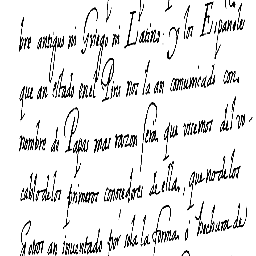 bre antiguo ni Griego ni Latino: y los Españoles
que an estado en el Piru nos la an comunicado con
nombre de Papas mas razon sera que usemos del vo-
cablo de los primeros comedores de ella, que no de los
que an inventado por sola la forma o hechura de